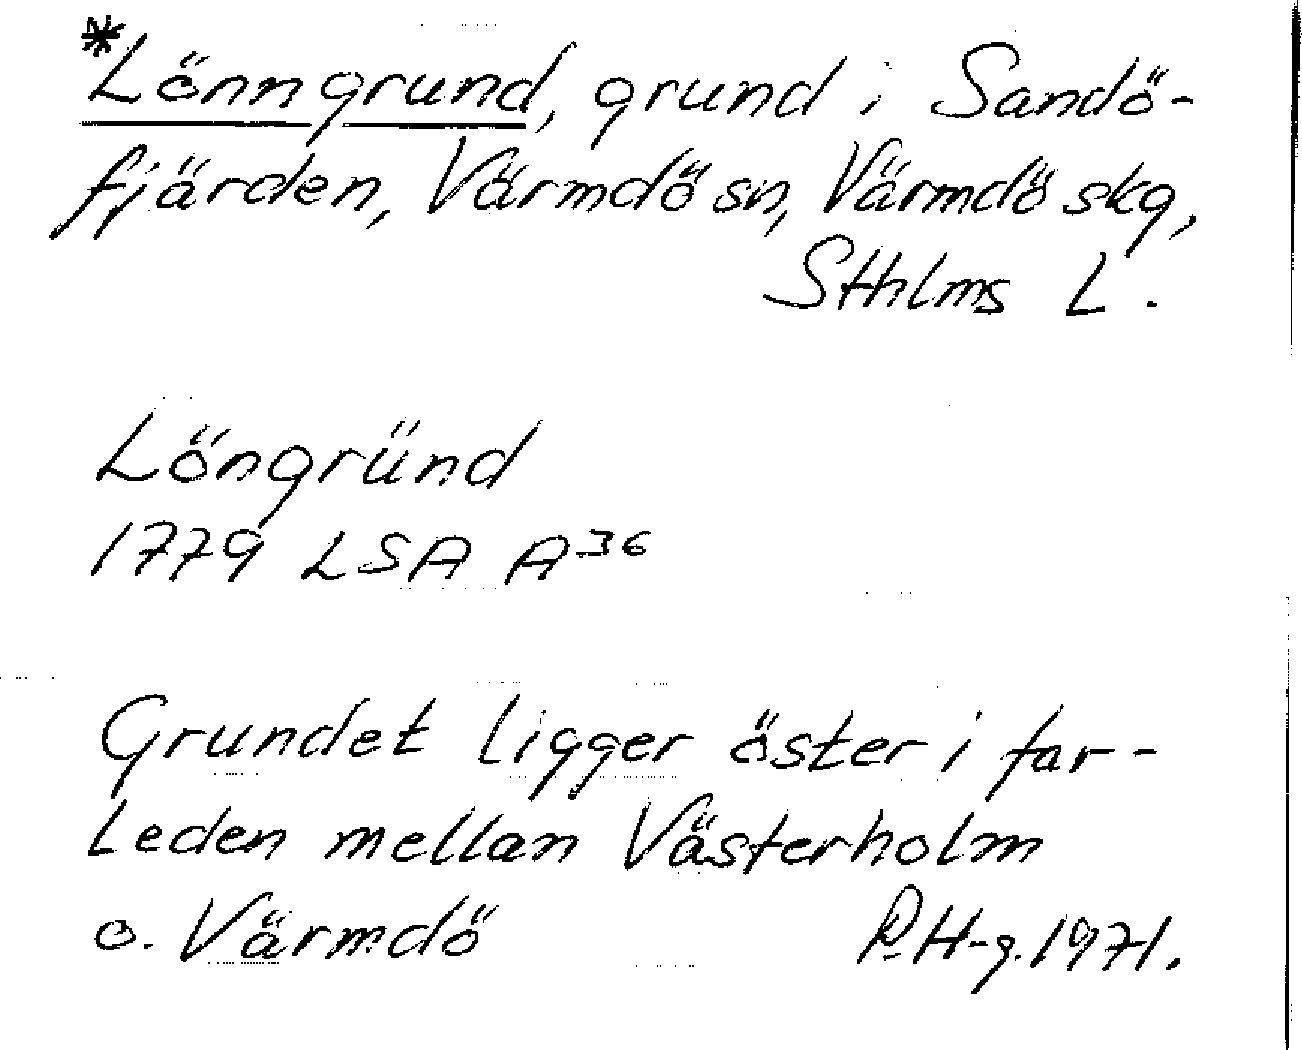 *Lönngrund, grund i Sandö-
fjärden, Värmdö sn, Värmdö skg,
Sthlms L.
Löngründ
1779 LSA A36
Grundet ligger öster i far-
leden mellan Västerholm
o. Värmdö
R. H-g. 1971.